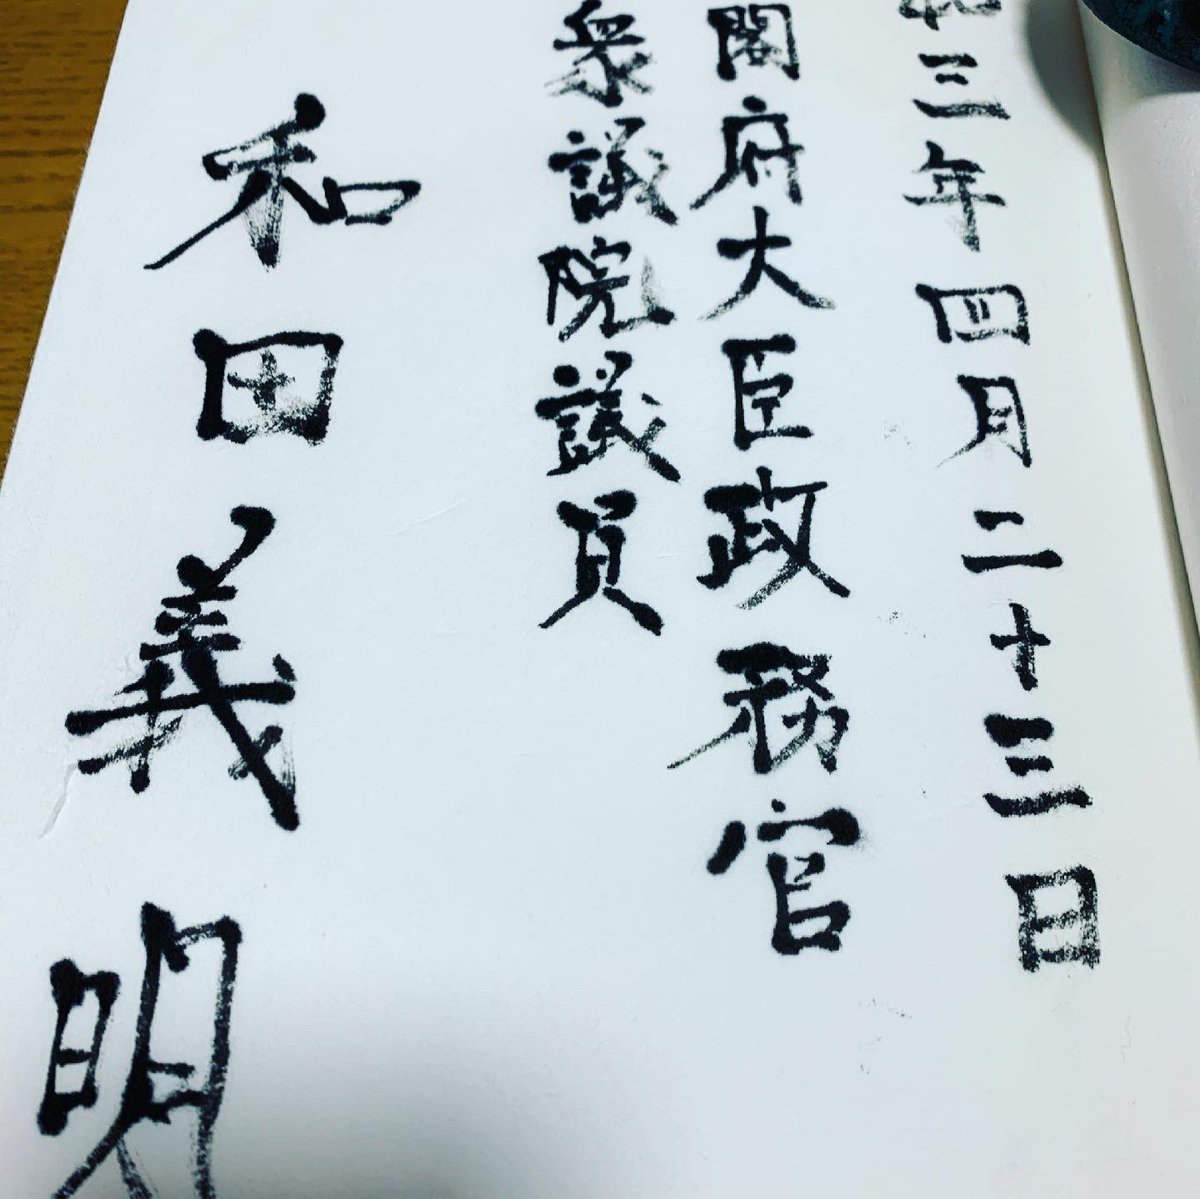 和三年四月二十三日
閣府大臣政務官
衆議院議員
和田義明